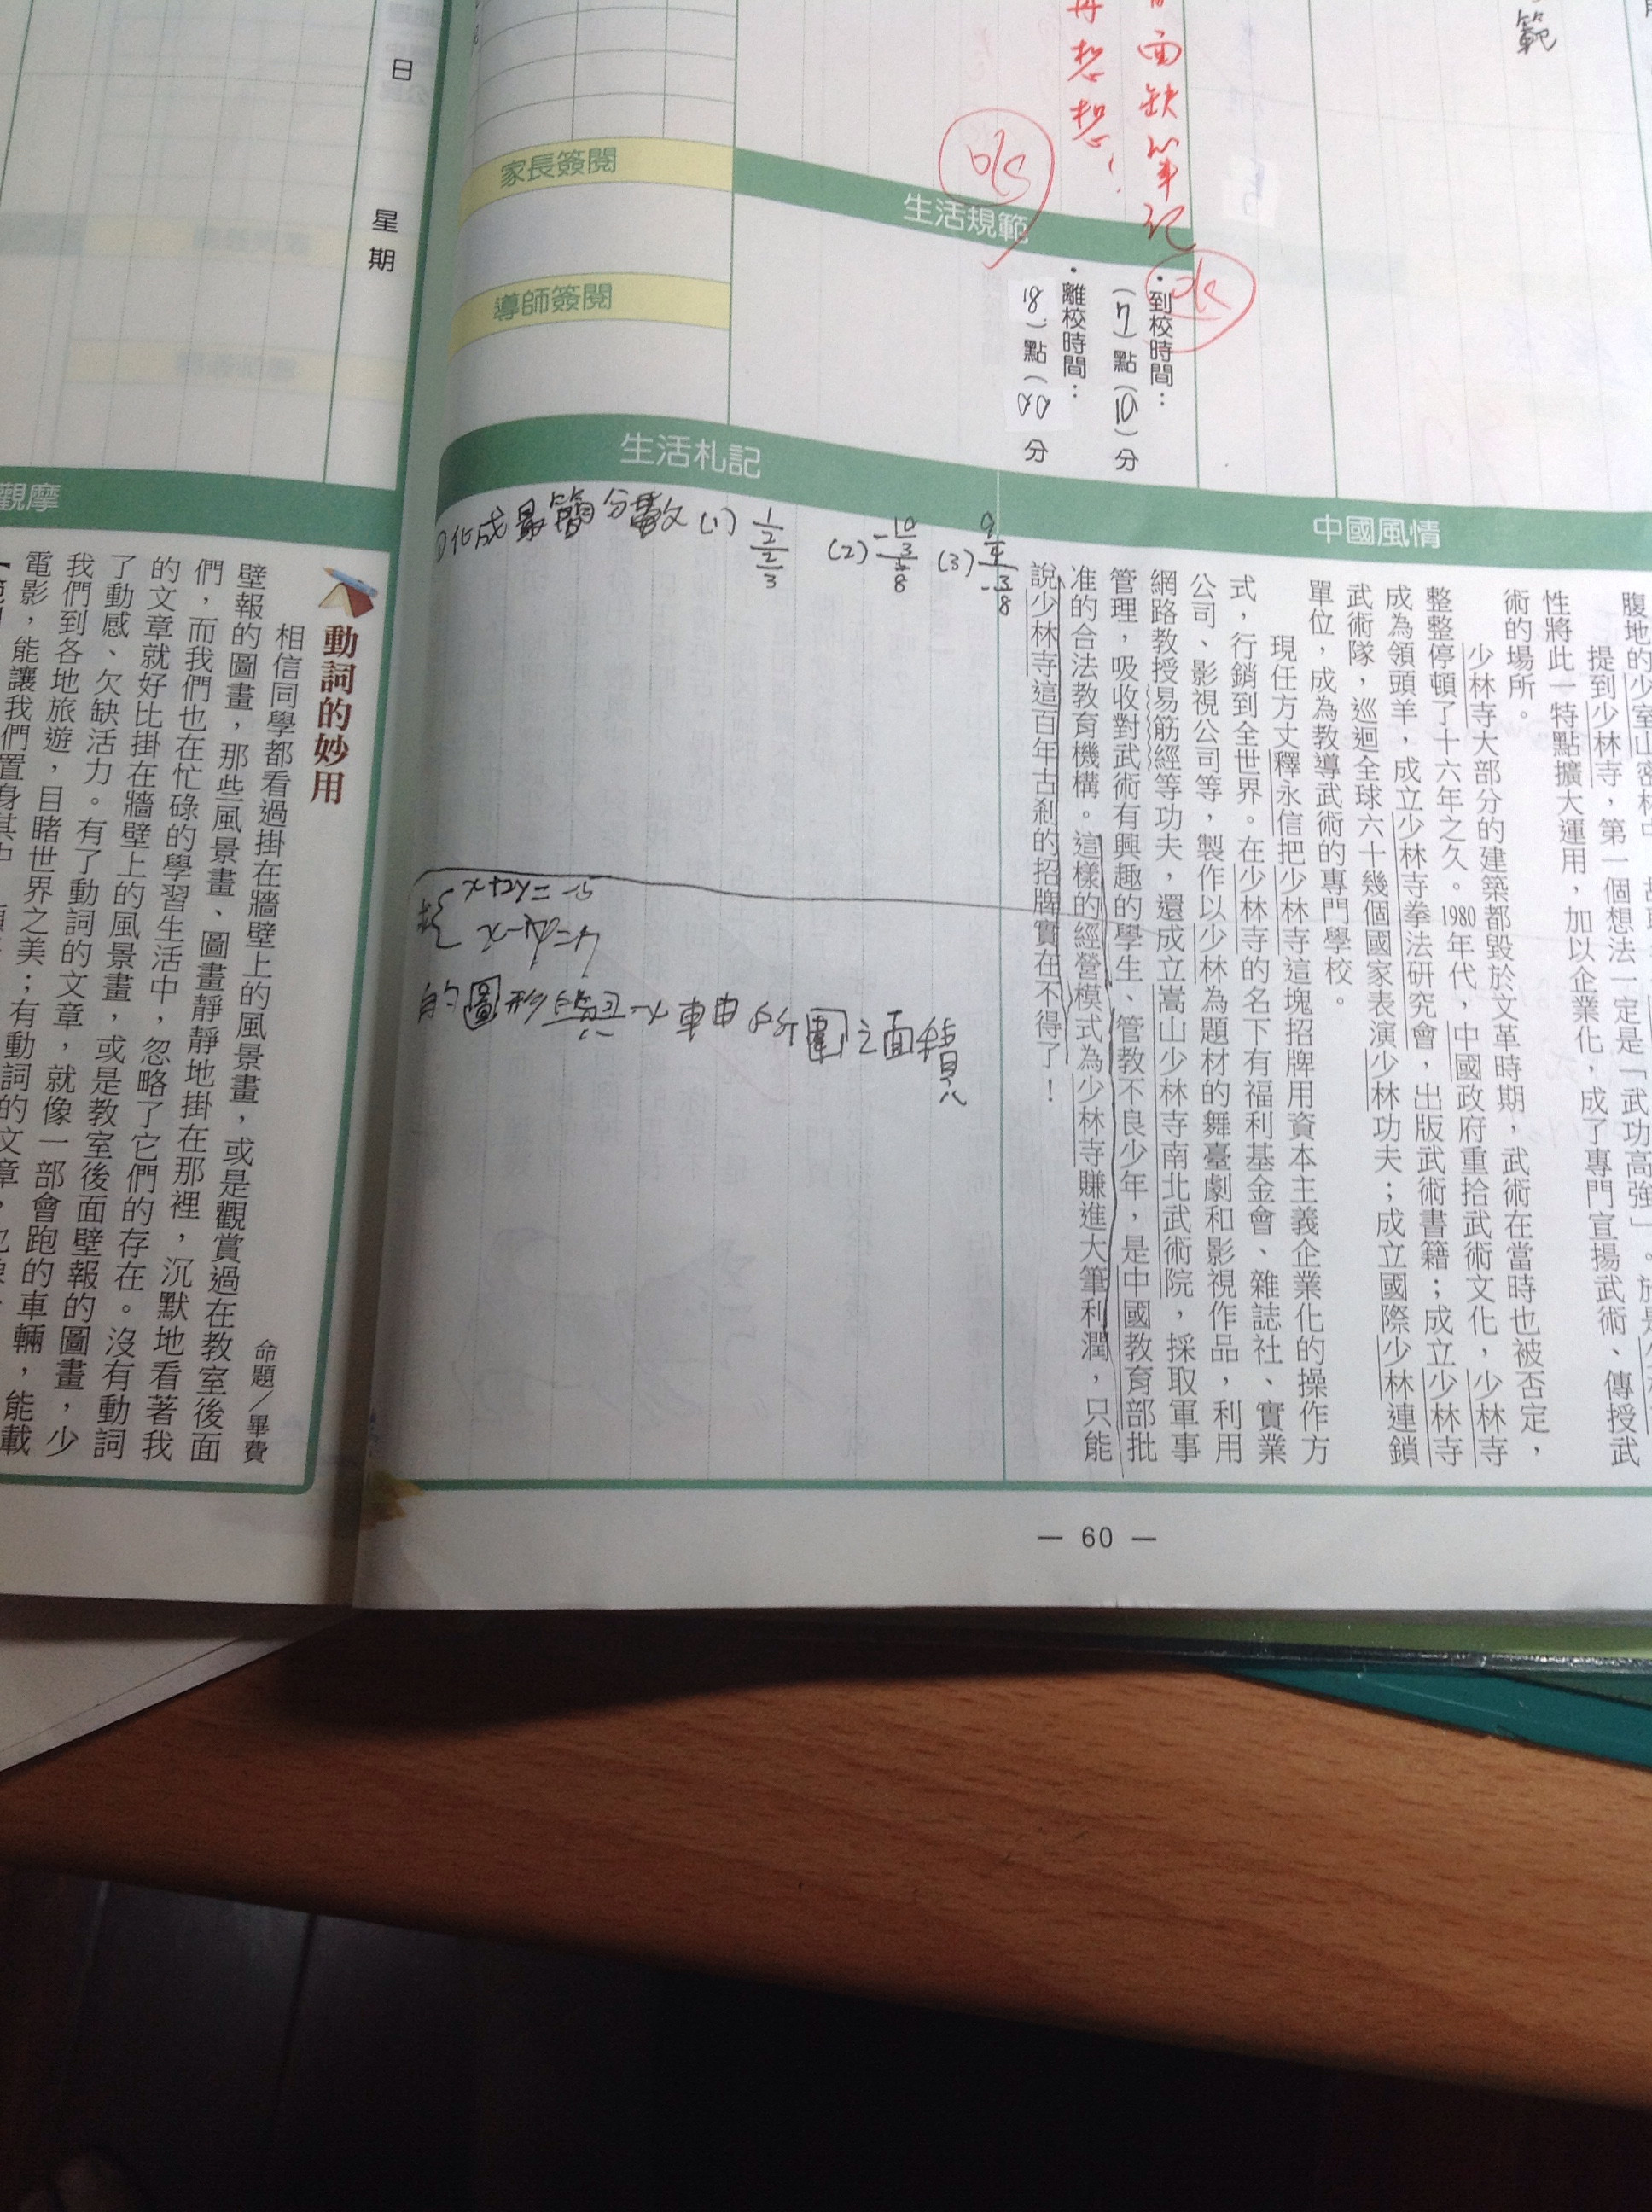 範
面缺筆記
再想想！
ok
ok
日
星期
家長簽閱
導師簽閱
生活規範
・到校時間：
(7)點(10)分
・離校時間：
18)點(00分
生活札記
化成最簡分數 (1) 1/2 / 2/3 (2) -10/3 / 5/8 (3) 9/4 / -3/8
求{x+2y=-5
的圖形與x軸所圍之面積
中國風情
提到少林寺，第一個想法一定是「武功高強」。
性將此一特點擴大運用，加以企業化，成了專門宣揚武術、傳授武
術的場所。
少林寺大部分的建築都毀於文革時期，武術在當時也被否定，
整整停頓了十六年之久。1980年代，中國政府重拾武術文化，少林寺
成為領頭羊，成立少林寺拳法研究會，出版武術書籍；成立少林寺
武術隊，巡迴全球六十幾個國家表演少林功夫；成立國際少林連鎖
單位，成為教導武術的專門學校。
現任方丈釋永信把少林寺這塊招牌用資本主義企業化的操作方
式，行銷到全世界。在少林寺的名下有福利基金會、雜誌社、實業
公司、影視公司等，製作以少林為題材的舞臺劇和影視作品，利用
網路教授易筋經等功夫，還成立嵩山少林寺南北武術院，採取軍事
管理，吸收對武術有興趣的學生、管教不良少年，是中國教育部批
准的合法教育機構。這樣的經營模式為少林寺賺進大筆利潤，只能
說少林寺這百年古剎的招牌實在不得了！
觀摩
動詞的妙用
命題／畢費
相信同學都看過掛在牆壁上的風景畫，或是觀賞過在教室後面
壁報的圖畫，那些風景畫、圖畫靜靜地掛在那裡，沉默地看著我
們，而我們也在忙碌的學習生活中，忽略了它們的存在。沒有動詞
的文章就好比掛在牆壁上的風景畫，或是教室後面壁報的圖畫，少
了動感、欠缺活力。有了動詞的文章，就像一部會跑的車輛，能載
我們到各地旅遊，目睹世界之美；有動詞的文章，也
電影，能讓我們置身其中
— 60 —